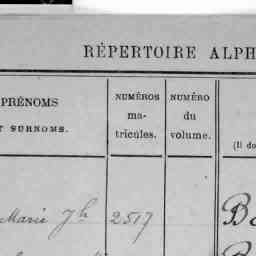 RÉPERTOIRE ALPH
PRÉNOMS
T SURNOMS.
NUMÉROS
ma-
tricules.
NUMÉRO
du
volume.
(Il do
Marie Jh 2517